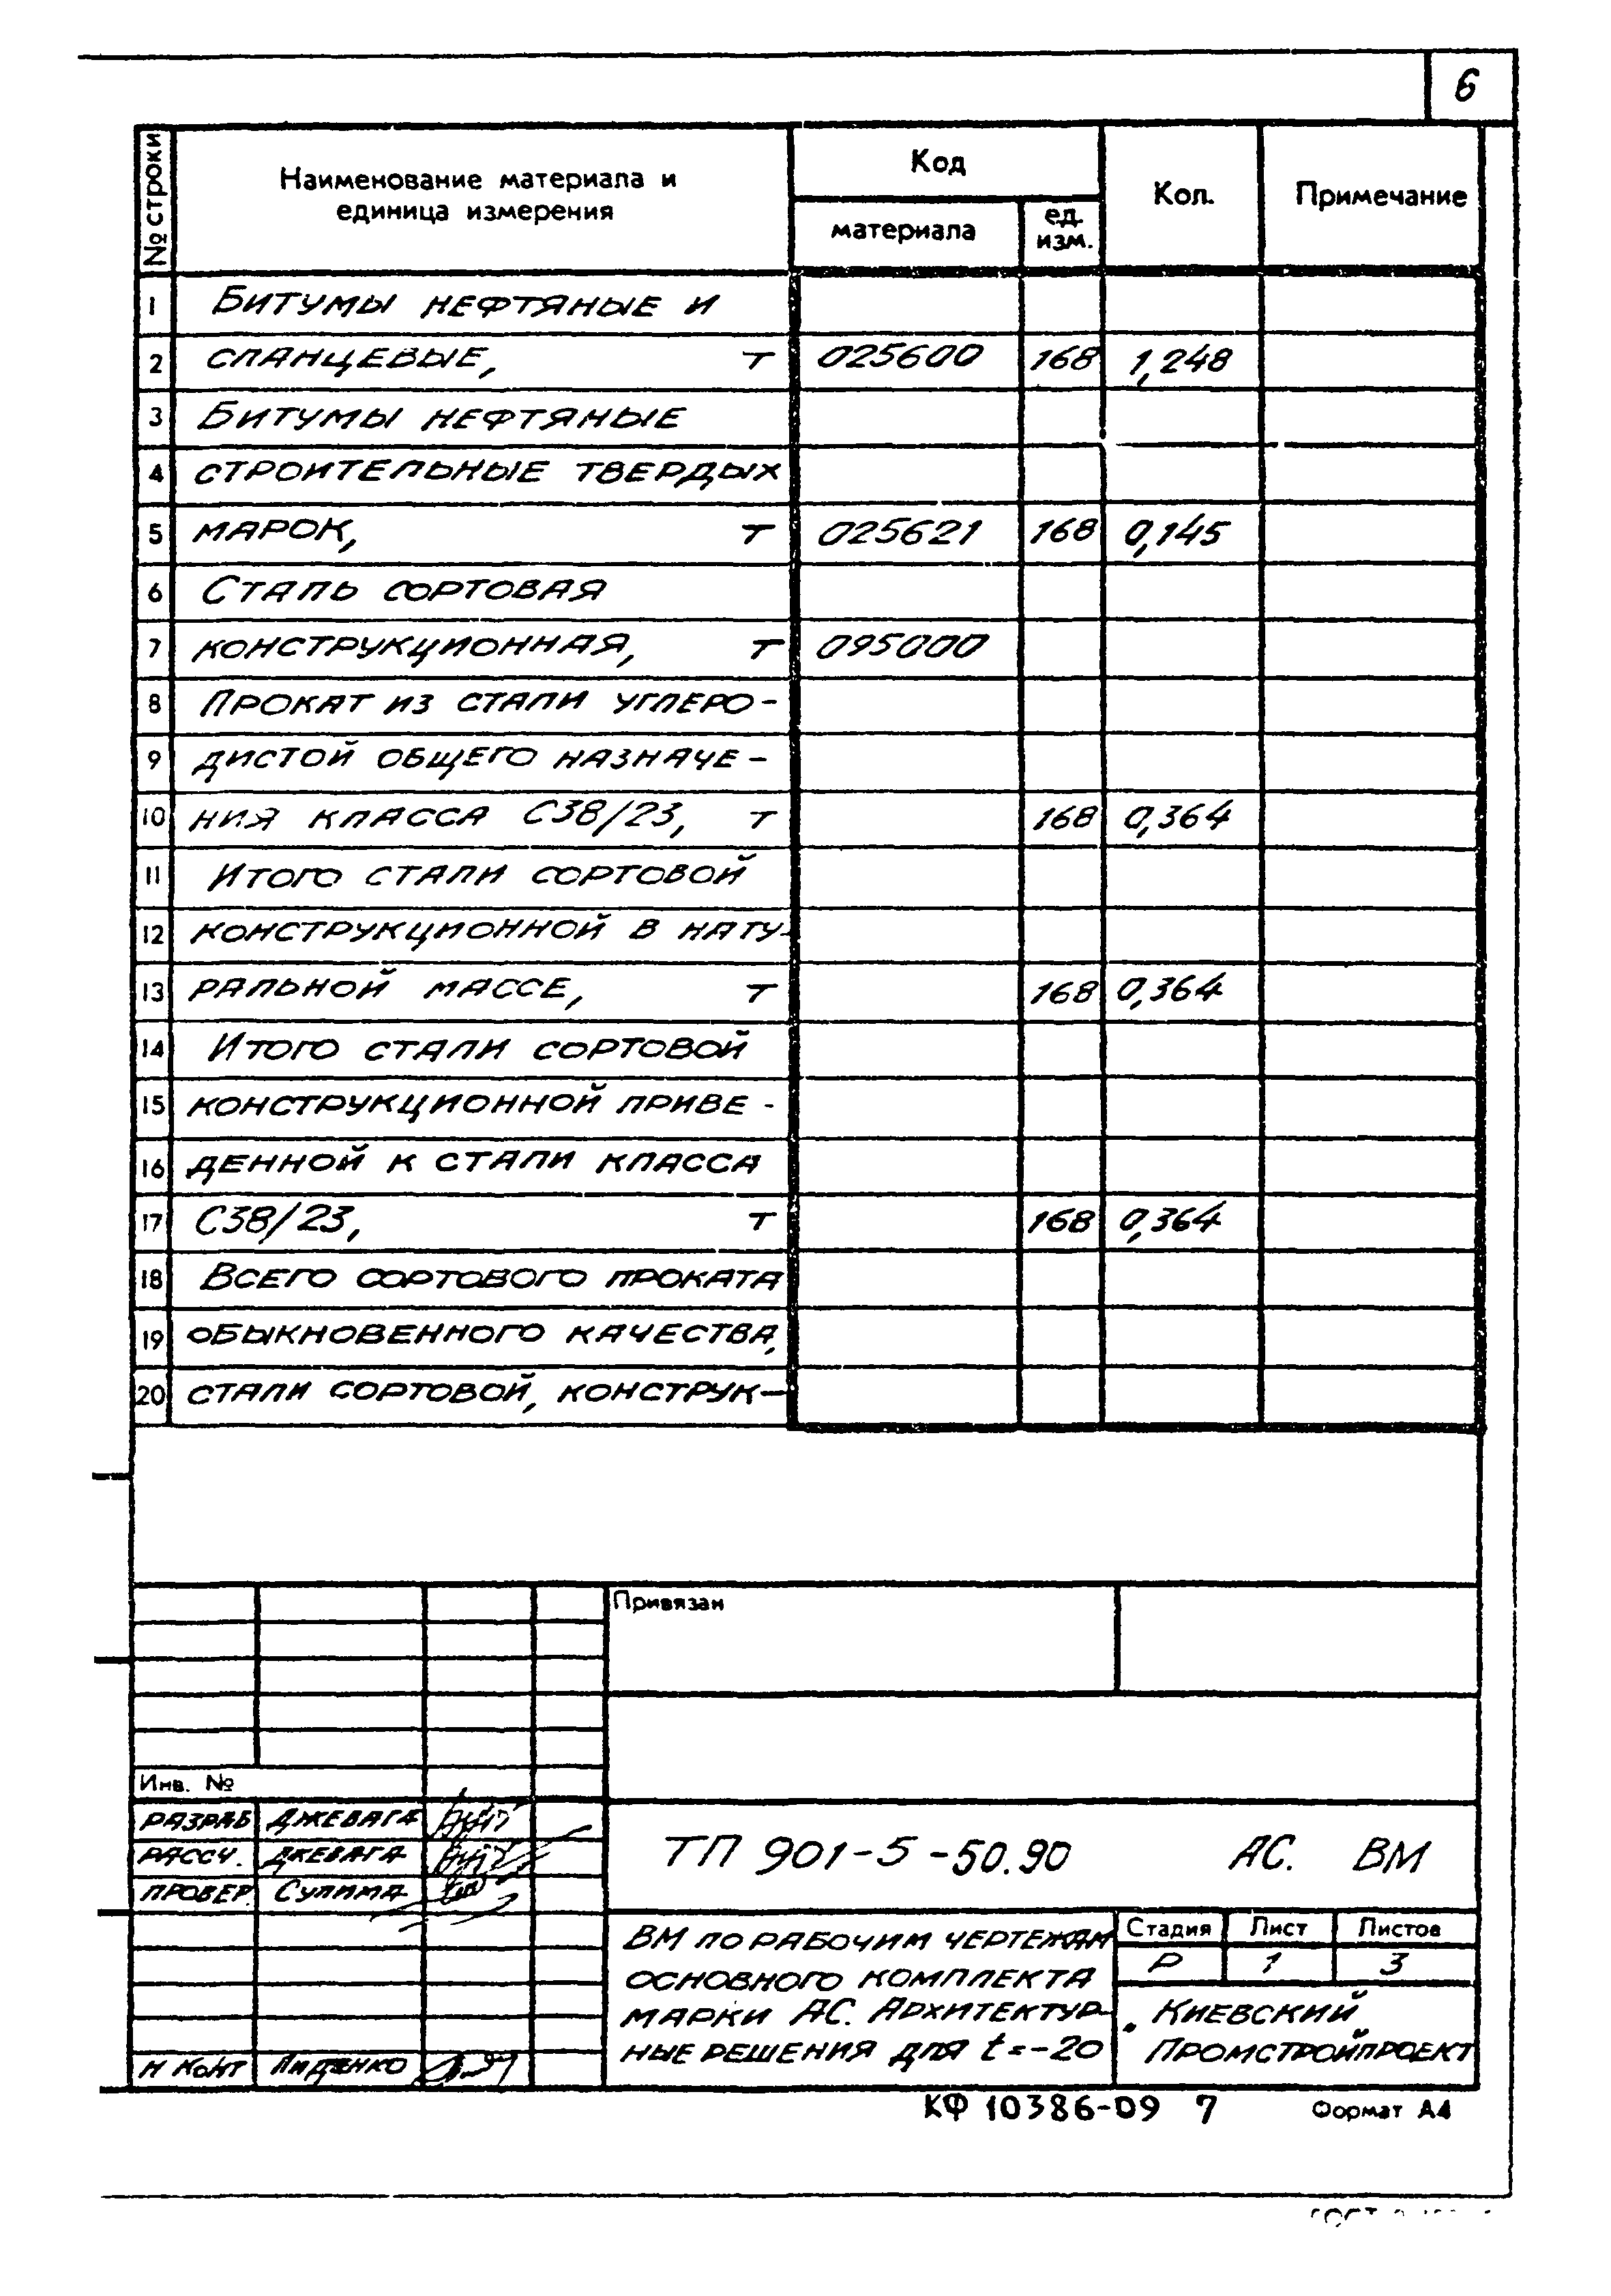 6
№ строки
Наименование материала и
единица измерения
Код
материала
ед.
изм.
Кол.
Примечание
1 Битумы нефтяные и
2 сланцевые, т 025600 168 1,248
3 Битумы нефтяные
4 строительные твердых
5 марок, т 025621 168 0,145
6 Сталь сортовая
7 конструкционная, т 095000
8 Прокат из стали углеро-
9 дистой общего назначе-
10 ния класса С38/23, т 168 0,364
11 Итого стали сортовой
12 конструкционной в нату-
13 ральной массе, т 168 0,364
14 Итого стали сортовой
15 конструкционной приве-
16 денной к стали класса
17 С38/23, т 168 0,364
18 Всего сортового проката
19 обыкновенного качества,
20 стали сортовой, конструк-
Привязан
Инв. №
Разраб Джевага
Рассч. Джевага
Провер. Сулима
Н конт Лиденко
ТП 901-5-50.90 АС. ВМ
ВМ по рабочим чертежам
основного комплекта
марки АС. Архитектур-
ные решения для t=-20
Стадия Лист Листов
Р 1 3
Киевский
Промстройпроект
КФ 10386-09 7
Формат А4